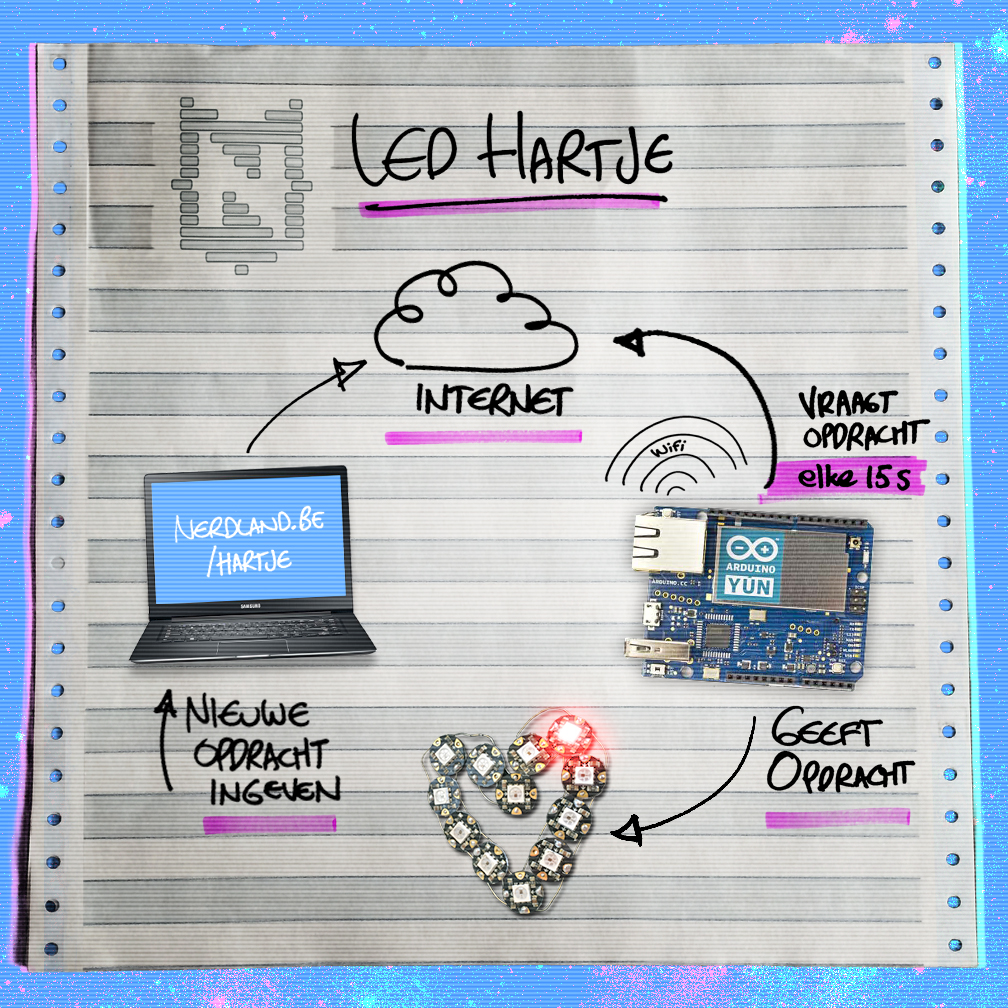 LED HARTJE
INTERNET
WiFi
VRAAGT
OPDRACHT
elke 15s
NERDLAND.BE
/HARTJE
SAMSUNG
ARDUINO
YUN
ARDUINO.CC
NIEUWE
OPDRACHT
INGEVEN
GEEFT
OPDRACHT